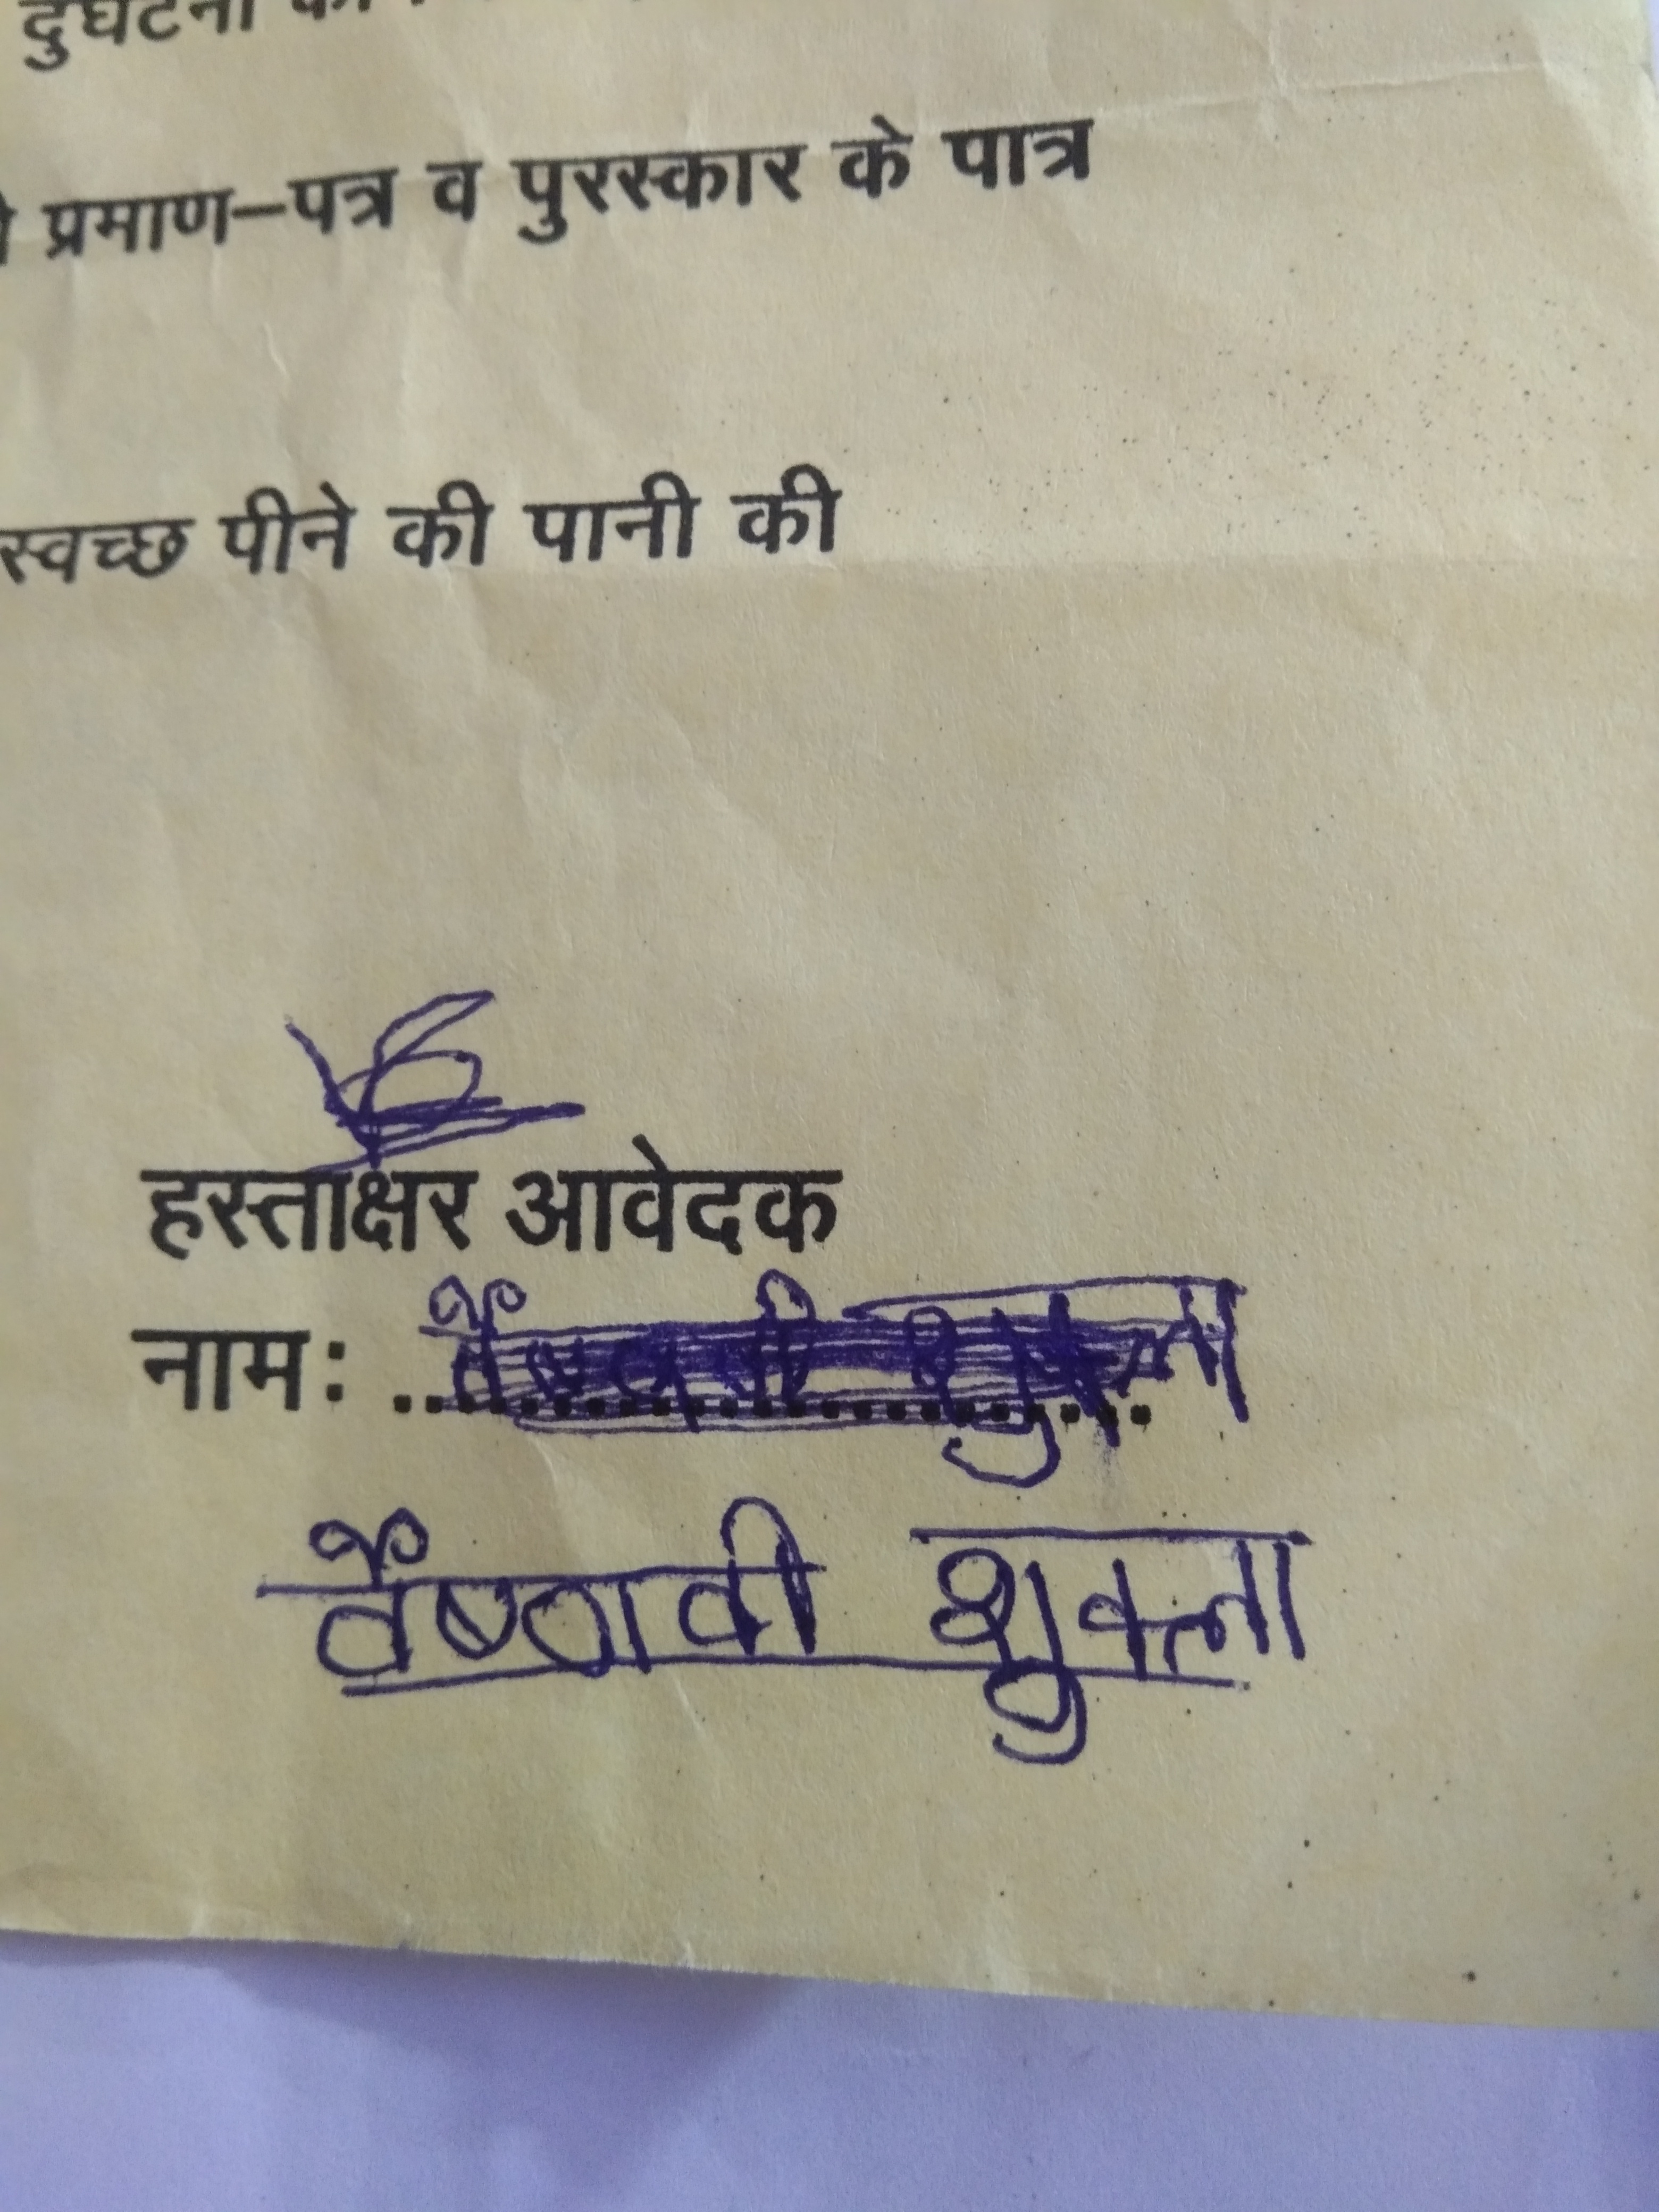 दुर्घटना
प्रमाण–पत्र व पुरस्कार के पात्र
स्वच्छ पीने की पानी की
हस्ताक्षर आवेदक
नामः ..वैष्णवी शुक्ला
वैष्णवी शुक्ला